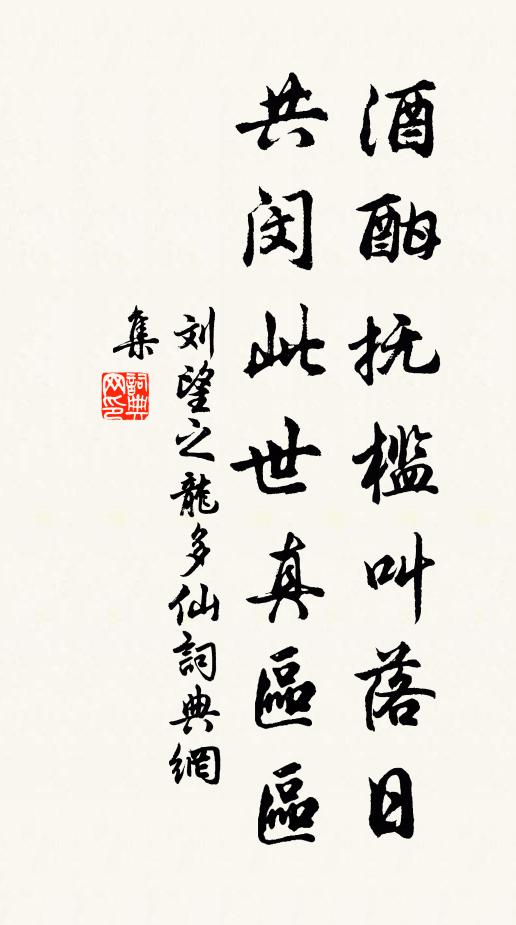 酒酣抚槛叫落日
共闵此世真區區
刘望之龍多仙詞典網
集
詞典网印